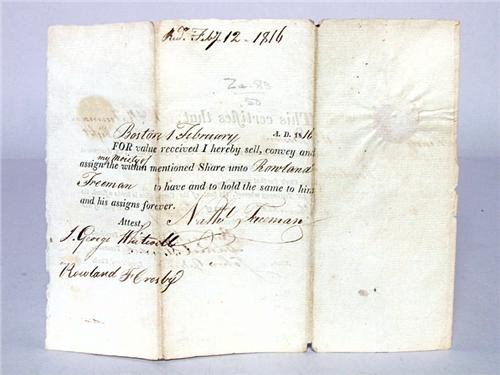 Recd. Feby. 12 - 1816
Boston 1 February A. D. 1816
FOR value received I hereby sell, convey and
my moiety of
assign the within mentioned Share unto Rowland
Freeman to have and to hold the same to him
and his assigns forever.
Attest, Nathl. Freeman
J. George Whitwell
Rowland F Crosby
This certifies that